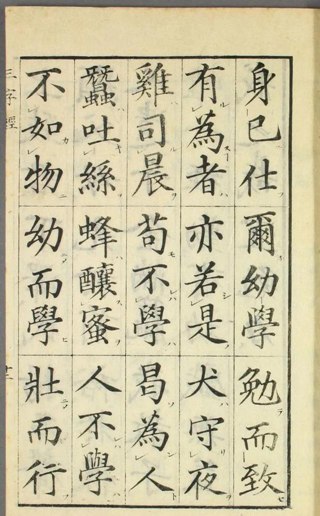 身已仕爾幼學勉而致
有為者亦若是犬守夜
雞司晨苟不學曷為人
蠶吐絲蜂釀蜜人不學
不如物幼而學壯而行
三字經
十二